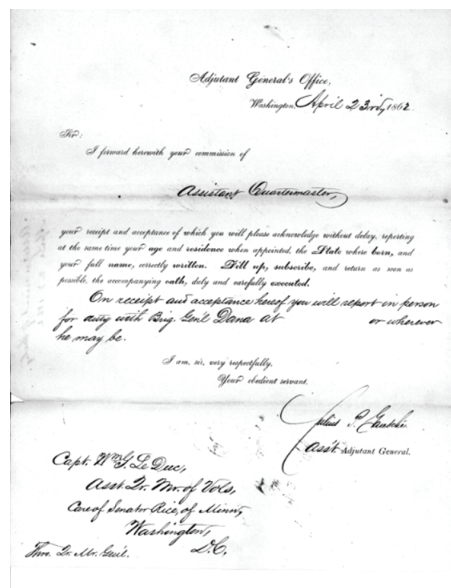 Adjutant General's Office,
Washington, April 23rd, 1862.
Sir:
I forward herewith your commission of
Assistant Quartermaster,
your receipt and acceptance of which you will please acknowledge without delay, reporting
at the same time your age and residence when appointed, the State where born, and
your full name, correctly written. Fill up, subscribe, and return as soon as
possible, the accompanying oath, duly and carefully executed.
On receipt and acceptance hereof you will report in person
for duty with Brig. Gen'l Dana at or wherever
he may be.
I am, sir, very respectfully,
Your obedient servant,
Julius P. Garesché
Asst. Adjutant General.
Capt. Wm G. Le Duc,
Asst. Qr. Mr. of Vols,
Care of Senator Rice, of Minn,
Washington,
D.C.
Thro. Qr. Mr. Gen'l.